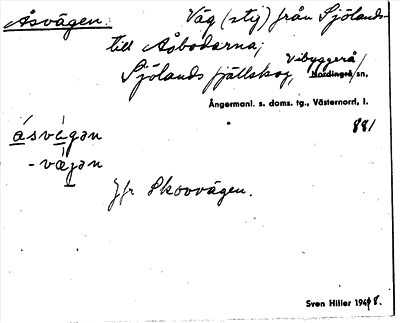 Åsvägen. Väg (stig) från Sjölands-
till Åbodarna,
Sjölands fjällskog, Vibyggerå
Nordingrå sn,
Ångermanl. s. doms. tg., Västernorrl. l.
881
åsvägan
-väjan
Jfr Skovvägen.
Sven Hiller 1948.